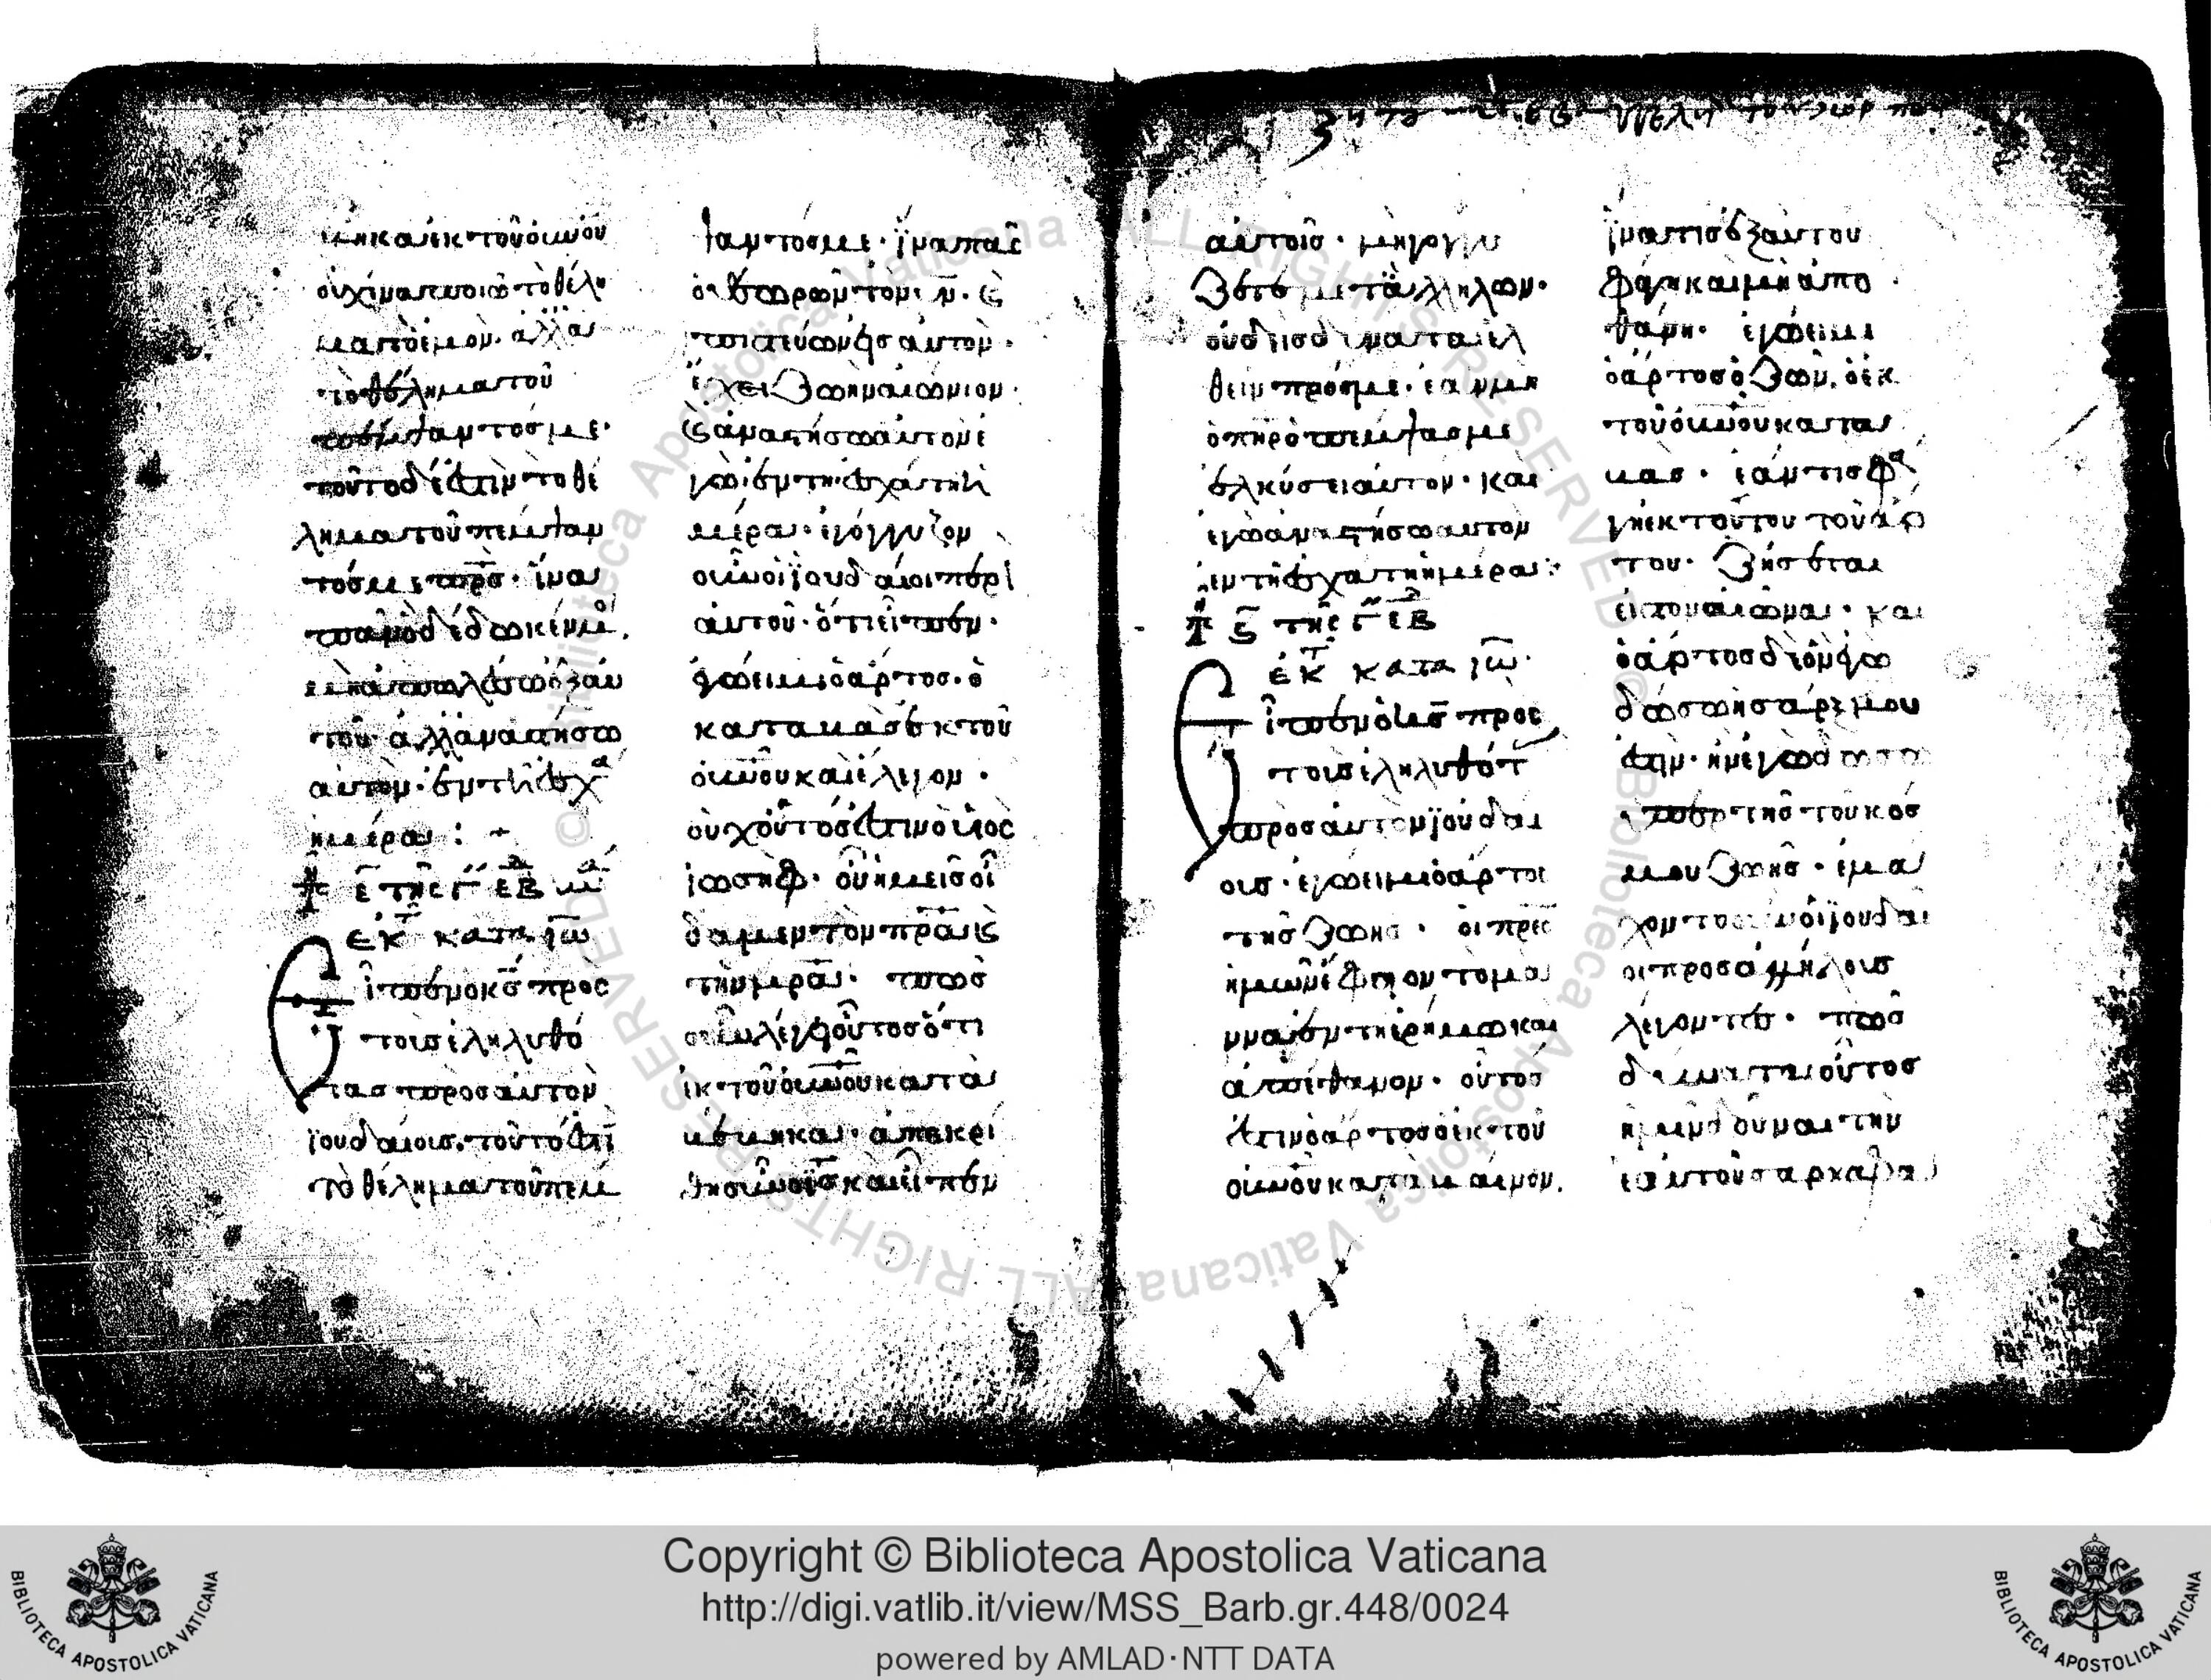 βηκα ἐκ τοῦ οὐνοῦ
οὐχ ἵνα ποιῶ τὸ θέλη
μα τὸ ἐμὸν. ἀλλὰ
τὸ θέλημα τοῦ
πέμψαντός με·
τοῦτο δέ ἐστὶν τὸ θέ
λημα τοῦ πέμψαν
τός με πρς· ἵνα
πᾶν ὃ δέδωκέν μοι,
μὴ ἀπολέσω ἐξ αὐ
τοῦ· ἀλλὰ ἀναστήσω
αὐτὸν· ἐν τῇ ἐσχα
ἡμέρα:
ε τῆς γ εβ
ἐκ τ κατὰ ιω
Εἶπεν ὁ κς πρὸς
τοὺς ἐληλυθό
τας πρὸς αὐτὸν
ϊουδαίους. τοῦτό ἐστι
τὸ θέλημα τοῦ πέμ
ψαντός με· ἵνα πᾶς
ὁ θεωρῶν τὸν υν· καὶ
πιστεύων εἰς αὐτὸν·
ἔχει ζωὴν αἰώνιον·
καὶ ἀναστήσω αὐτὸν ἐ
γὼ· ἐν τῇ ἐσχάτη ἡ
μέρα· ἐγόγγυζον
οὖν οἱ ϊουδαῖοι περὶ
αὐτοῦ· ὅτι εἶπεν·
ἐγώ εἰμι ὁ ἄρτος· ὁ
καταβὰς ἐκ τοῦ
οὐνοῦ καὶ ἔλεγον·
οὐχ οὗτός ἐστιν ὁ υἱος
ἰωσὴφ· οὗ ἡμεῖς οἴ
δαμεν τὸν πρα καὶ
τὴν μρα· πῶς
οὖν λέγει οὗτος ὅτι
ἐκ τοῦ οὐνοῦ κατα
βέβηκα· ἀπεκρί
θη οὖν ὁ ις καὶ εἶπεν
αὐτοῖς· μὴ γογγυ
ζετε μετ' ἀλλήλων·
οὐδεὶς δύναται ἐλ
θεῖν πρός με· ἐὰν μὴ
ὁ πηρ ὁ πέμψας με
ἑλκύσει αὐτον· καὶ
ἐγὼ ἀναστήσω αὐτον
ἐν τῇ ἐσχατη ἡμέρα:
ϛ τῆς γ εβ
ἐκ τ κατα ιω·
Εἶπεν ὁ ις προς
τοὺς ἐληλυθότ
πρὸς αὐτὸν ϊουδαί
ους· ἐγώ εἰμι ὁ ἄρτος
τῆς ζωης· οἱ πρες
ἡμῶν ἔφαγον το μα
ννα ἐν τῆ ἐρήμω και
ἀπέθανον· οὗτος
ἐστιν ὁ ἄρτος ὁ ἐκ τοῦ
οὐνοῦ καταβαίνων.
ἵνα τις ἐξ αὐτου
φάγη καὶ μὴ ἀπο
θάνη· ἐγώ εἰμι
ὁ ἄρτος ὁ ζῶν. ὁ ἐκ
τοῦ οὐνοῦ κατα
βας· ἐάν τις φα
γη ἐκ τούτου τοῦ ἄρ
του· ζήσεται
εἰς τον αἰῶνα· και
ὁ ἄρτος δὲ ὃν ἐγω
δώσω ἡ σάρξ μου
ἐστιν· ἣν ἐγὼ δωσω
ὑπερ τῆς του κοσ
μου ζωῆς· ἐμα
χοντο οὖν οἱ ϊουδαι
οι προς ἀλλήλους
λέγοντες· πῶς
δυναται οὗτος
ἡμῖν δοῦναι την
ἑαυτοῦ σαρκα φα
Copyright © Biblioteca Apostolica Vaticana
http://digi.vatlib.it/view/MSS_Barb.gr.448/0024
powered by AMLAD·NTT DATA
BIBLIOTECA APOSTOLICA VATICANA
BIBLIOTECA APOSTOLICA VATICANA
© Biblioteca Apostolica Vaticana ALL RIGHTS RESERVED